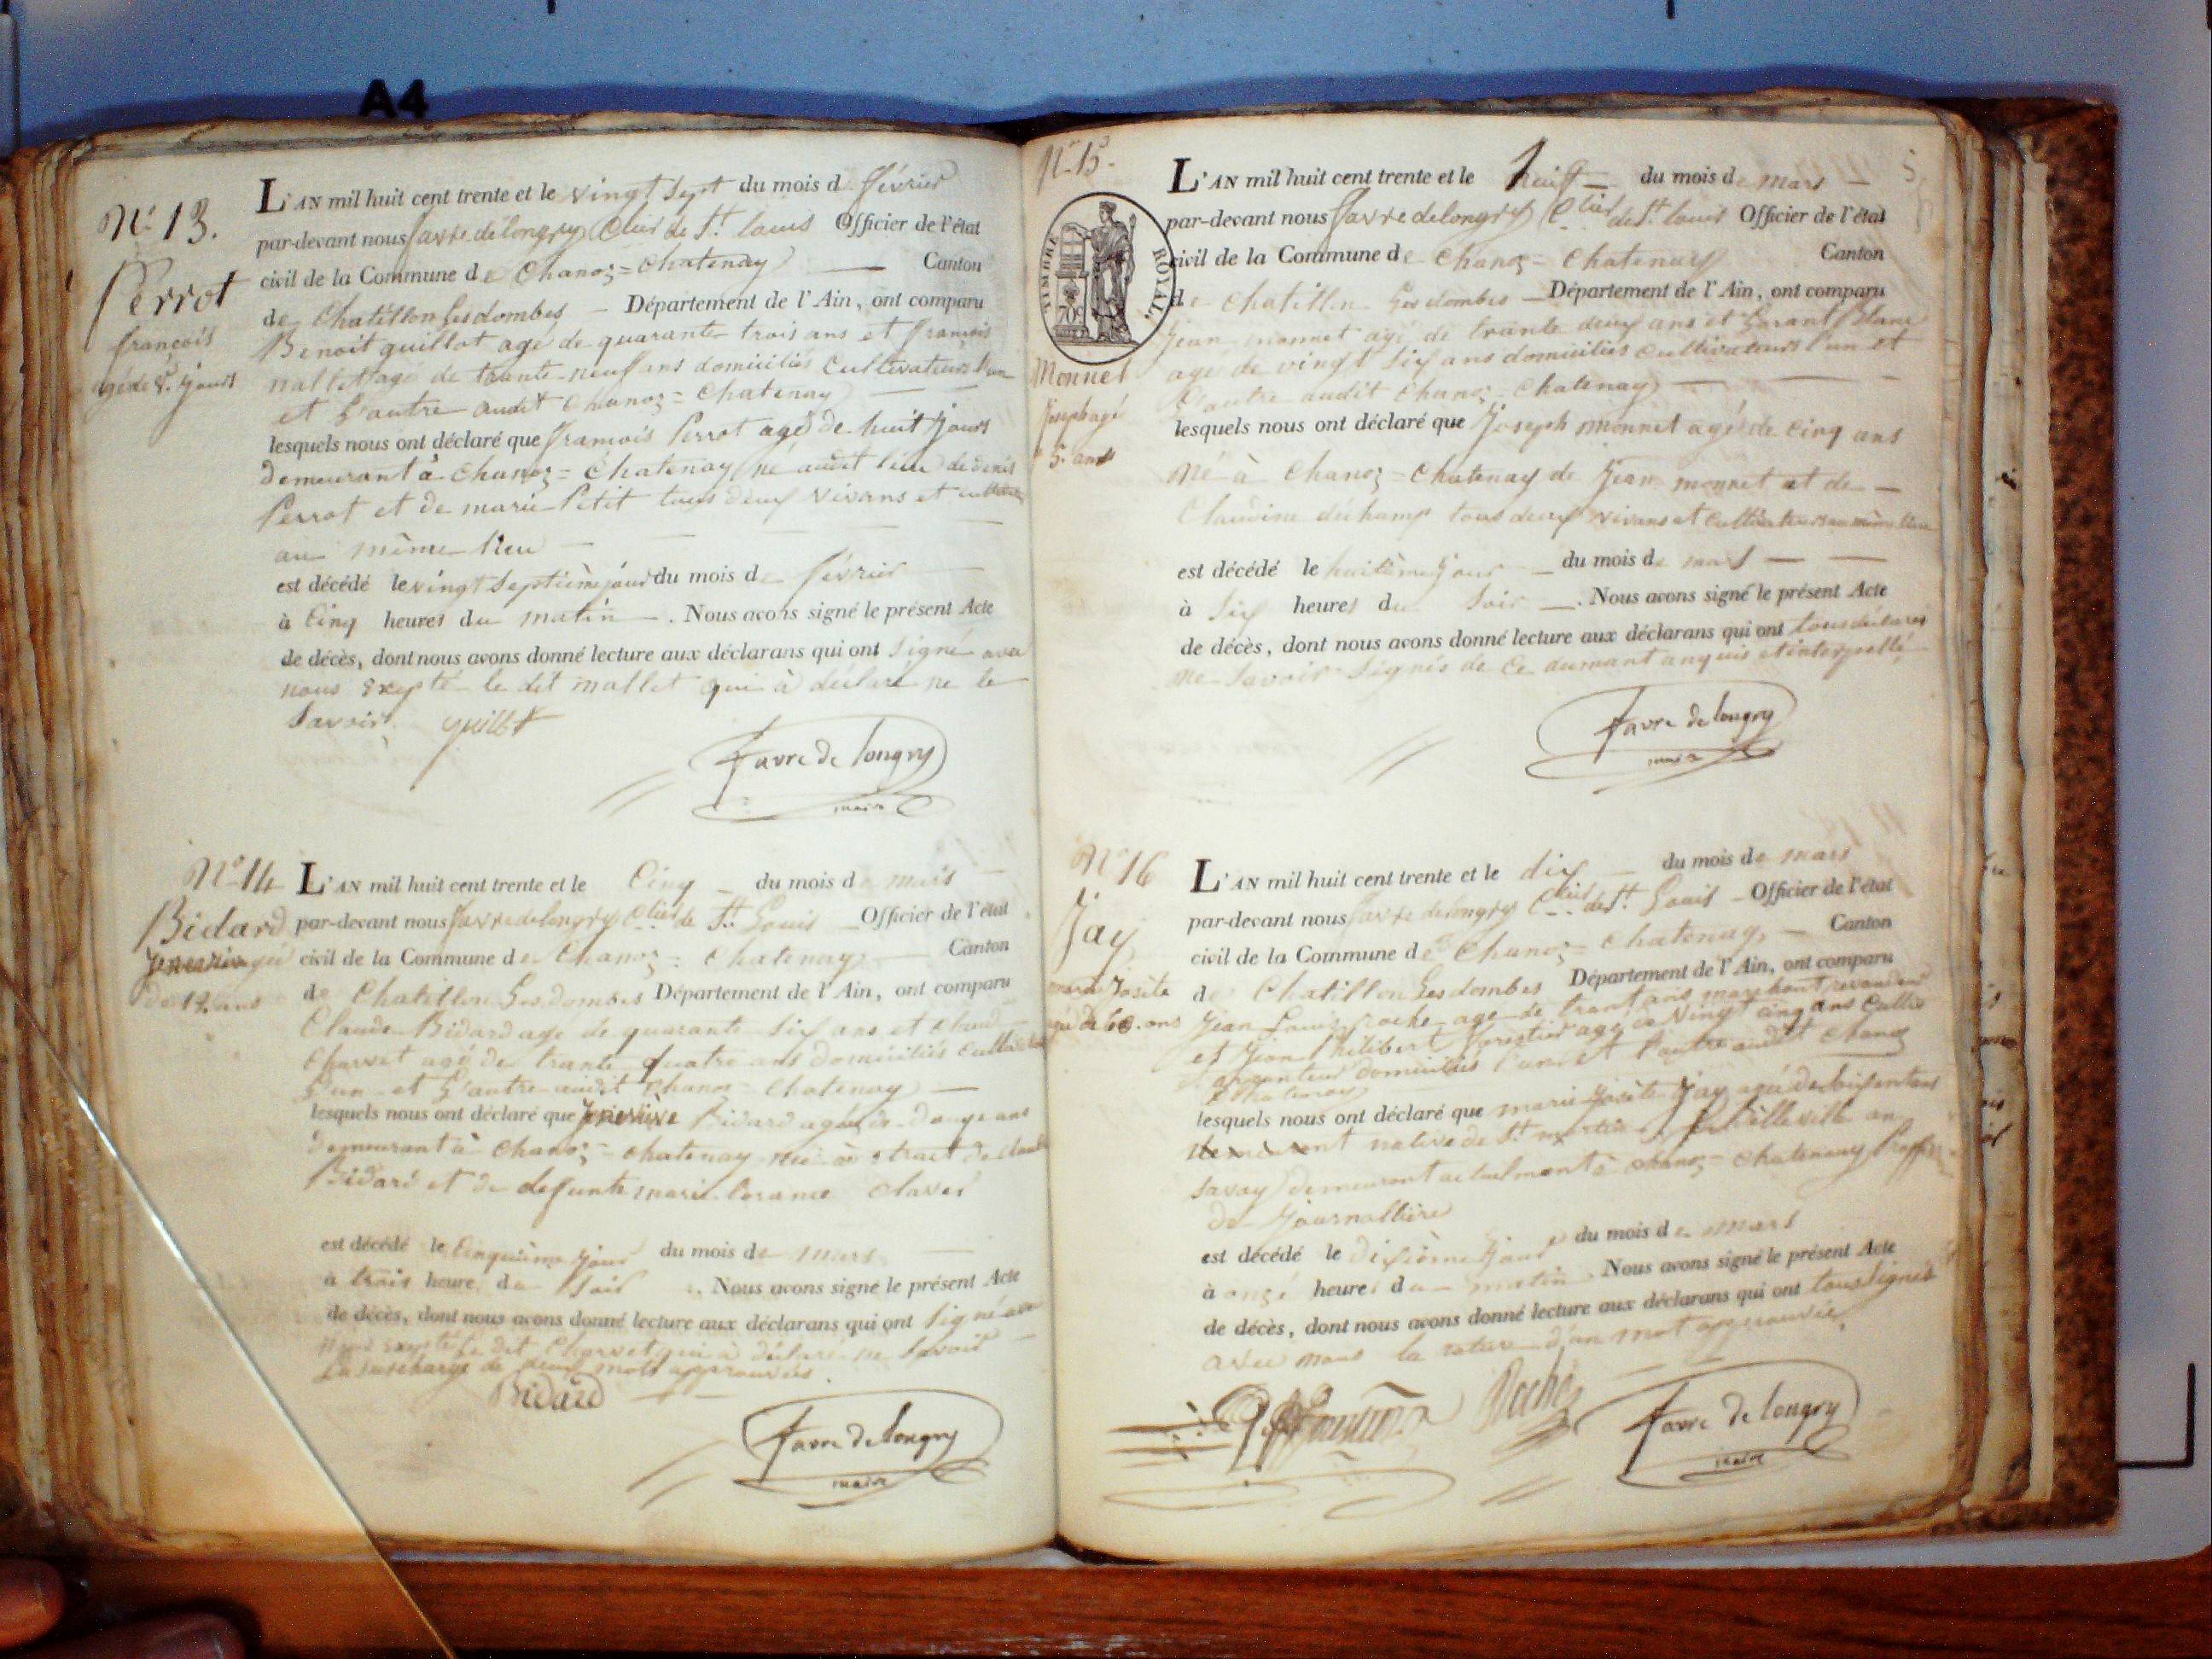 A4
N° 13.
Perrot
françois
agé de 8. jours
L'AN mil huit cent trente et le vingt sept du mois d février
par-devant nous favre de longry Clier de St. louis Officier de l'état
civil de la Commune de Chanoz = Chatenay Canton
de Chatillon les dombes Département de l'Ain, ont comparu
Benoit guillot agé de quarante trois ans et françois
nallet agé de trante-neuf ans domiciliés Cultivateurs l'un
et l'autre audit Chanoz = Chatenay
lesquels nous ont déclaré que francois Perrot agé de huit jours
demeurant à Chanoz = Chatenay né audit lieu de denis
Perrot et de marie Petit tous deux vivans et
au même lieu
est décédé le vingt septième jour du mois de février
à Cinq heures du matin . Nous avons signé le présent Acte
de décès, dont nous avons donné lecture aux déclarans qui ont signé avec
nous excepté le dit mallet qui à déclaré ne le
savoir guillot
favre de longry
maire
N° 14
Bidard
de 12. ans
L'AN mil huit cent trente et le Cinq du mois de mars
par-devant nous favre de longry Clier de St. Louis Officier de l'état
civil de la Commune de Chanoz = Chatenay Canton
de Chatillon les dombes Département de l'Ain, ont comparu
Claude Bidard age de quarante six ans et claude
Charvet agé de trante quatre ans domiciliés
l'un et l'autre audit Chanoz = Chatenay
lesquels nous ont déclaré que Bidard agée de douze ans
demeurant à Chanoz = chatenay née à de Claude
Bidard et de defunte marie
est décédé le Cinquième jour du mois de mars
à trois heure du soir . Nous avons signé le présent Acte
de décès, dont nous avons donné lecture aux déclarans qui ont signé avec
nous excepté le dit Charvet qui à déclaré ne savoir
la surcharge de deux mots approuvées.
Bidard
favre de longry
maire
N° 15.
TIMBRE ROYAL.
70c
Monnet
Joseph agé
5. ans
L'AN mil huit cent trente et le neuf du mois de mars
par-devant nous favre de longry Clier de St. louis Officier de l'état
civil de la Commune de Chanoz = Chatenay Canton
de Chatillon les dombes Département de l'Ain, ont comparu
Jean monnet agé de trante deux ans et
age de vingt six ans domiciliés cultivateurs l'un et
l'autre audit Chanoz = Chatenay
lesquels nous ont déclaré que Joseph monnet agé de cinq ans
né à Chanoz = Chatenay de Jean monnet et de
Claudine tous deux vivans et Cultivateurs au même lieu
est décédé le huitième jour du mois de mars
à six heures du soir . Nous avons signé le présent Acte
de décès, dont nous avons donné lecture aux déclarans qui ont tous déclarés
ne savoir signés de ce dumant anquis et interpellé
favre de longry
maire
5
N° 16
Jay
marie Josite
L'AN mil huit cent trente et le dix du mois de mars
par-devant nous favre de longry Clier de St. Louis Officier de l'état
civil de la Commune de Chanoz = Chatenay Canton
de Chatillon les dombes Département de l'Ain, ont comparu
Jean Louis roche age de trant ans marchant
et Jean Philibert agé de vingt cinq ans
domiciliés l'un et l'autre audit Chanoz
Chatenay
lesquels nous ont déclaré que marie Josite Jay agée de soixente ans
native de St. martin en
savoy demeurant actuelment à Chanoz = Chatenay
de Journallière
est décédé le dixième jour du mois de mars
à onze heures du matin . Nous avons signé le présent Acte
de décès, dont nous avons donné lecture aux déclarans qui ont tous signés
avec nous la rature d'un mot approuvée
Roche
favre de longry
maire